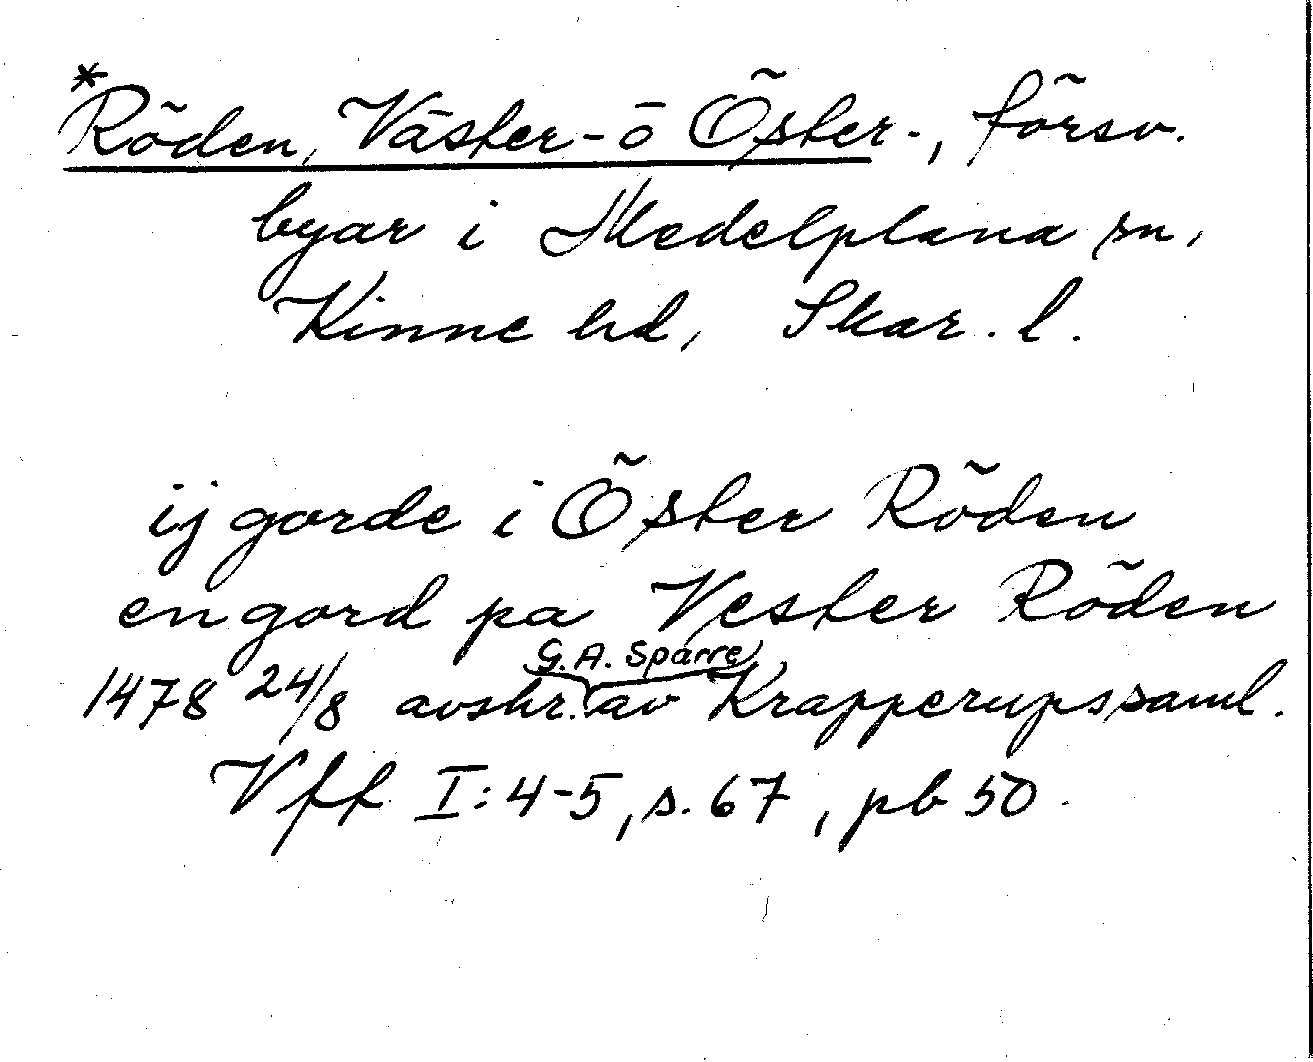 *Röden, Väster- o Öster-, försv.
byar i Medelplana sn,
Kinne hd, Skar. l.
ij gorde i Öster Röden
en gord pa Vester Röden
G. A. Sparre
1478 24/8 avskr. av Krapperupssaml.
Vff I: 4-5, s. 67, pb 50